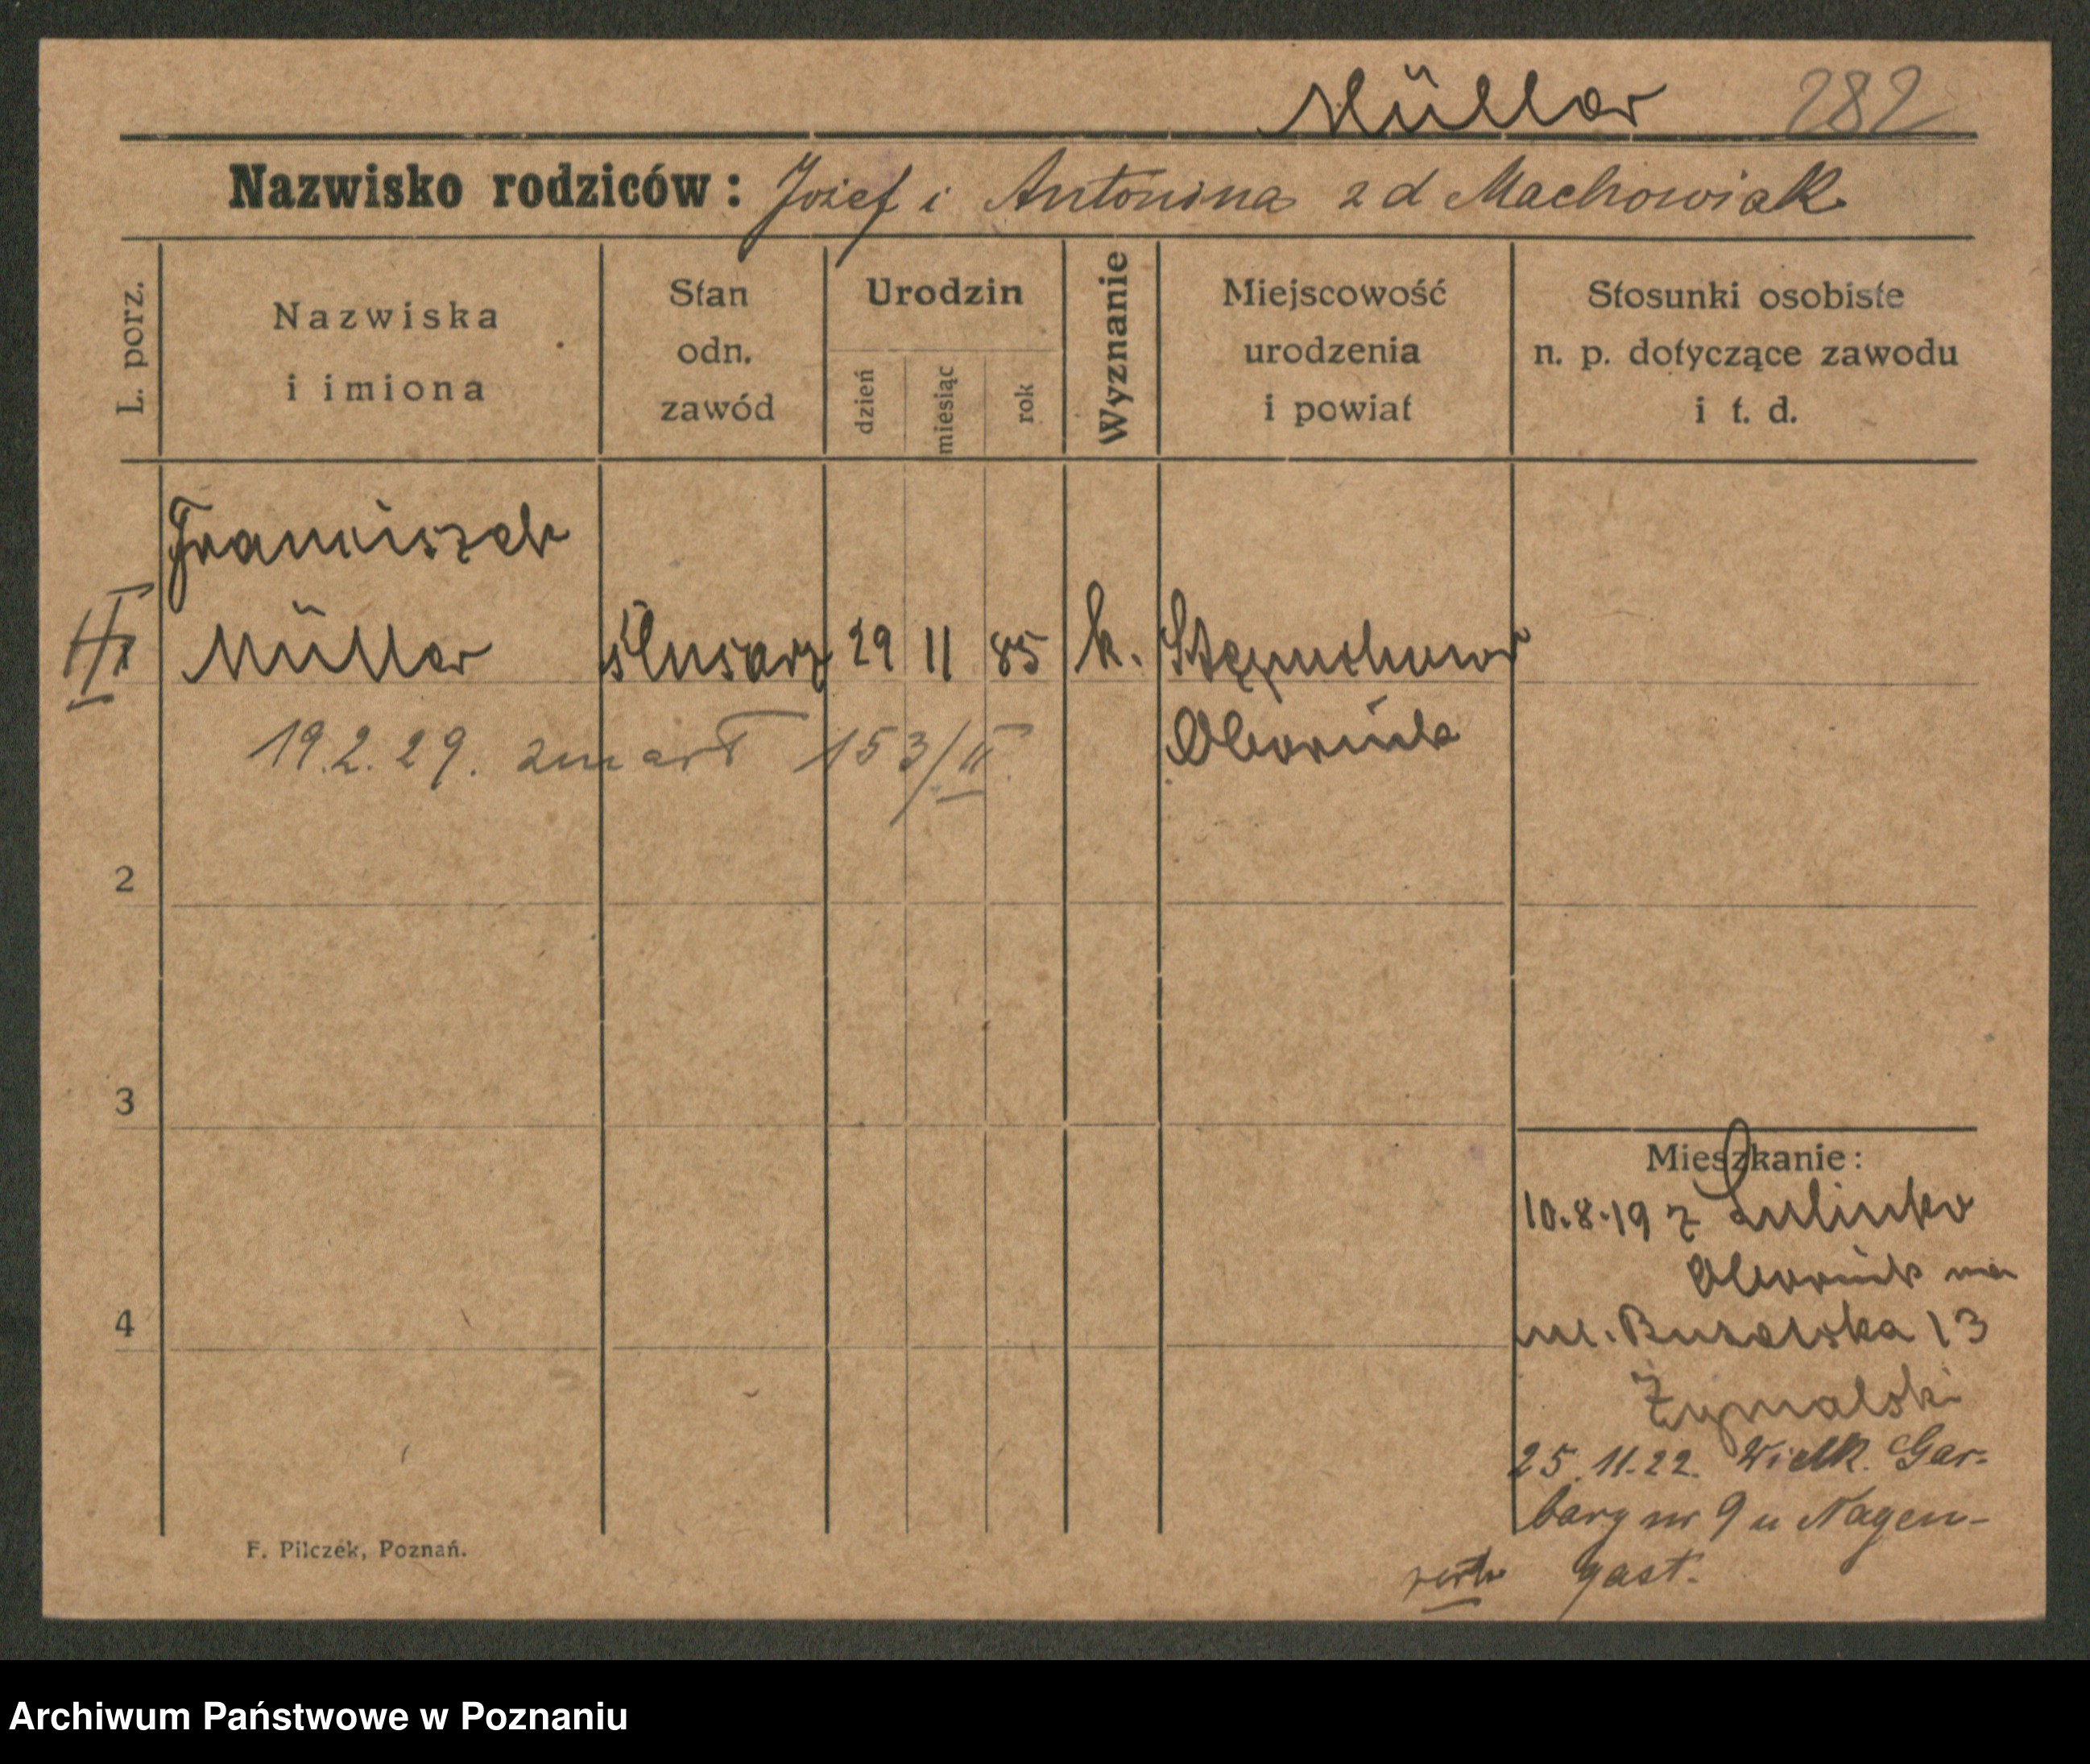 Müller 282
Nazwisko rodziców: Józef i Antonina z d Machowiak
L. porz.
Nazwiska
i imiona
Stan
odn.
zawód
Urodzin
dzień
miesiąc
rok
Wyznanie
Miejscowość
urodzenia
i powiat
Stosunki osobiste
n. p. dotyczące zawodu
i t. d.
Franciszek
Müller ślusarz 29 11 85 k.
Obornik
19.2.29. zmarł 153/II.
2
3
4
Mieszkanie:
10.8.19 z Lulinko
Obornik na
ul. 13
25.11.22. Wielk. Gar-
bary nr 9 u Nagen-
gast.
F. Pilczek, Poznań.
Archiwum Państwowe w Poznaniu